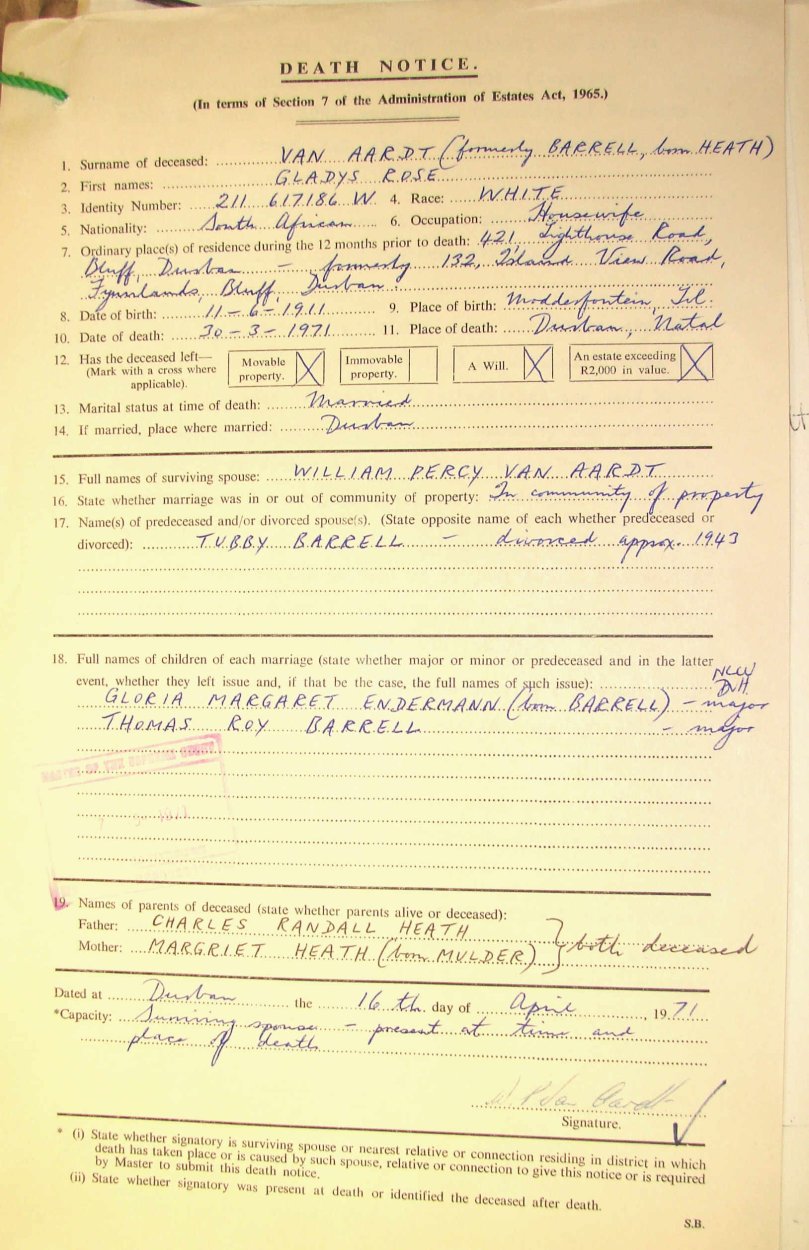 DEATH NOTICE.
(In terms of Section 7 of the Administration of Estates Act, 1965.)
1. Surname of deceased: VAN AARDT (formerly BARRELL, born HEATH)
2. First names: GLADYS ROSE
3. Identity Number: 211 617186 W 4. Race: WHITE
5. Nationality: South African 6. Occupation: Housewife
7. Ordinary place(s) of residence during the 12 months prior to death: 421 Lighthouse Road,
Bluff, Durban – formerly 132, Island View Road,
Fynnlands, Bluff, Durban
8. Date of birth: 11-6-1911 9. Place of birth: Modderfontein, Tvl.
10. Date of death: 30-3-1971 11. Place of death: Durban, Natal
12. Has the deceased left—
(Mark with a cross where
applicable).
Movable
property. X
Immovable
property.
A Will. X
An estate exceeding
R2,000 in value. X
13. Marital status at time of death: Married
14. If married, place where married: Durban
15. Full names of surviving spouse: WILLIAM PERCY VAN AARDT
16. State whether marriage was in or out of community of property: In community of property
17. Name(s) of predeceased and/or divorced spouse(s). (State opposite name of each whether predeceased or
divorced): TUBBY BARRELL – divorced approx. 1943
18. Full names of children of each marriage (state whether major or minor or predeceased and in the latter
event, whether they left issue and, if that be the case, the full names of such issue):
GLORIA MARGARET ENDERMANN (born BARRELL) – major
THOMAS ROY BARRELL – major
19. Names of parents of deceased (state whether parents alive or deceased):
Father: CHARLES RANDALL HEATH
Mother: MARGRIET HEATH (born MULDER) } both deceased
Dated at Durban the 16 th. day of April, 1971
*Capacity: Surviving spouse – present at time and
place of death
W. P. Van Aardt
Signature.
* (i) State whether signatory is surviving spouse or nearest relative or connection residing in district in which
death has taken place or is caused by such spouse, relative or connection to give this notice or is required
by Master to submit this death notice.
(ii) State whether signatory was present at death or identified the deceased after death.
S.B.